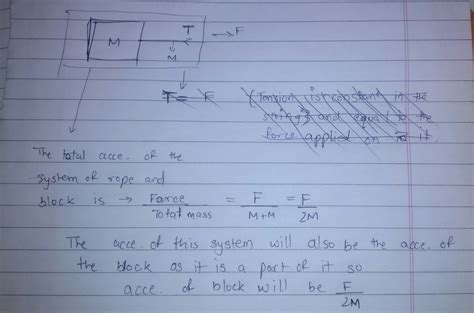 M T → F
M
T = F
(Tension is constant in the
string and equal to the
force applied on it.
The total acce. of the
system of rope and
block is → Force / Total mass = F / M+M = F / 2M
The acce. of this system will also be the acce. of
the block as it is a part of it so
acce. of block will be F / 2M